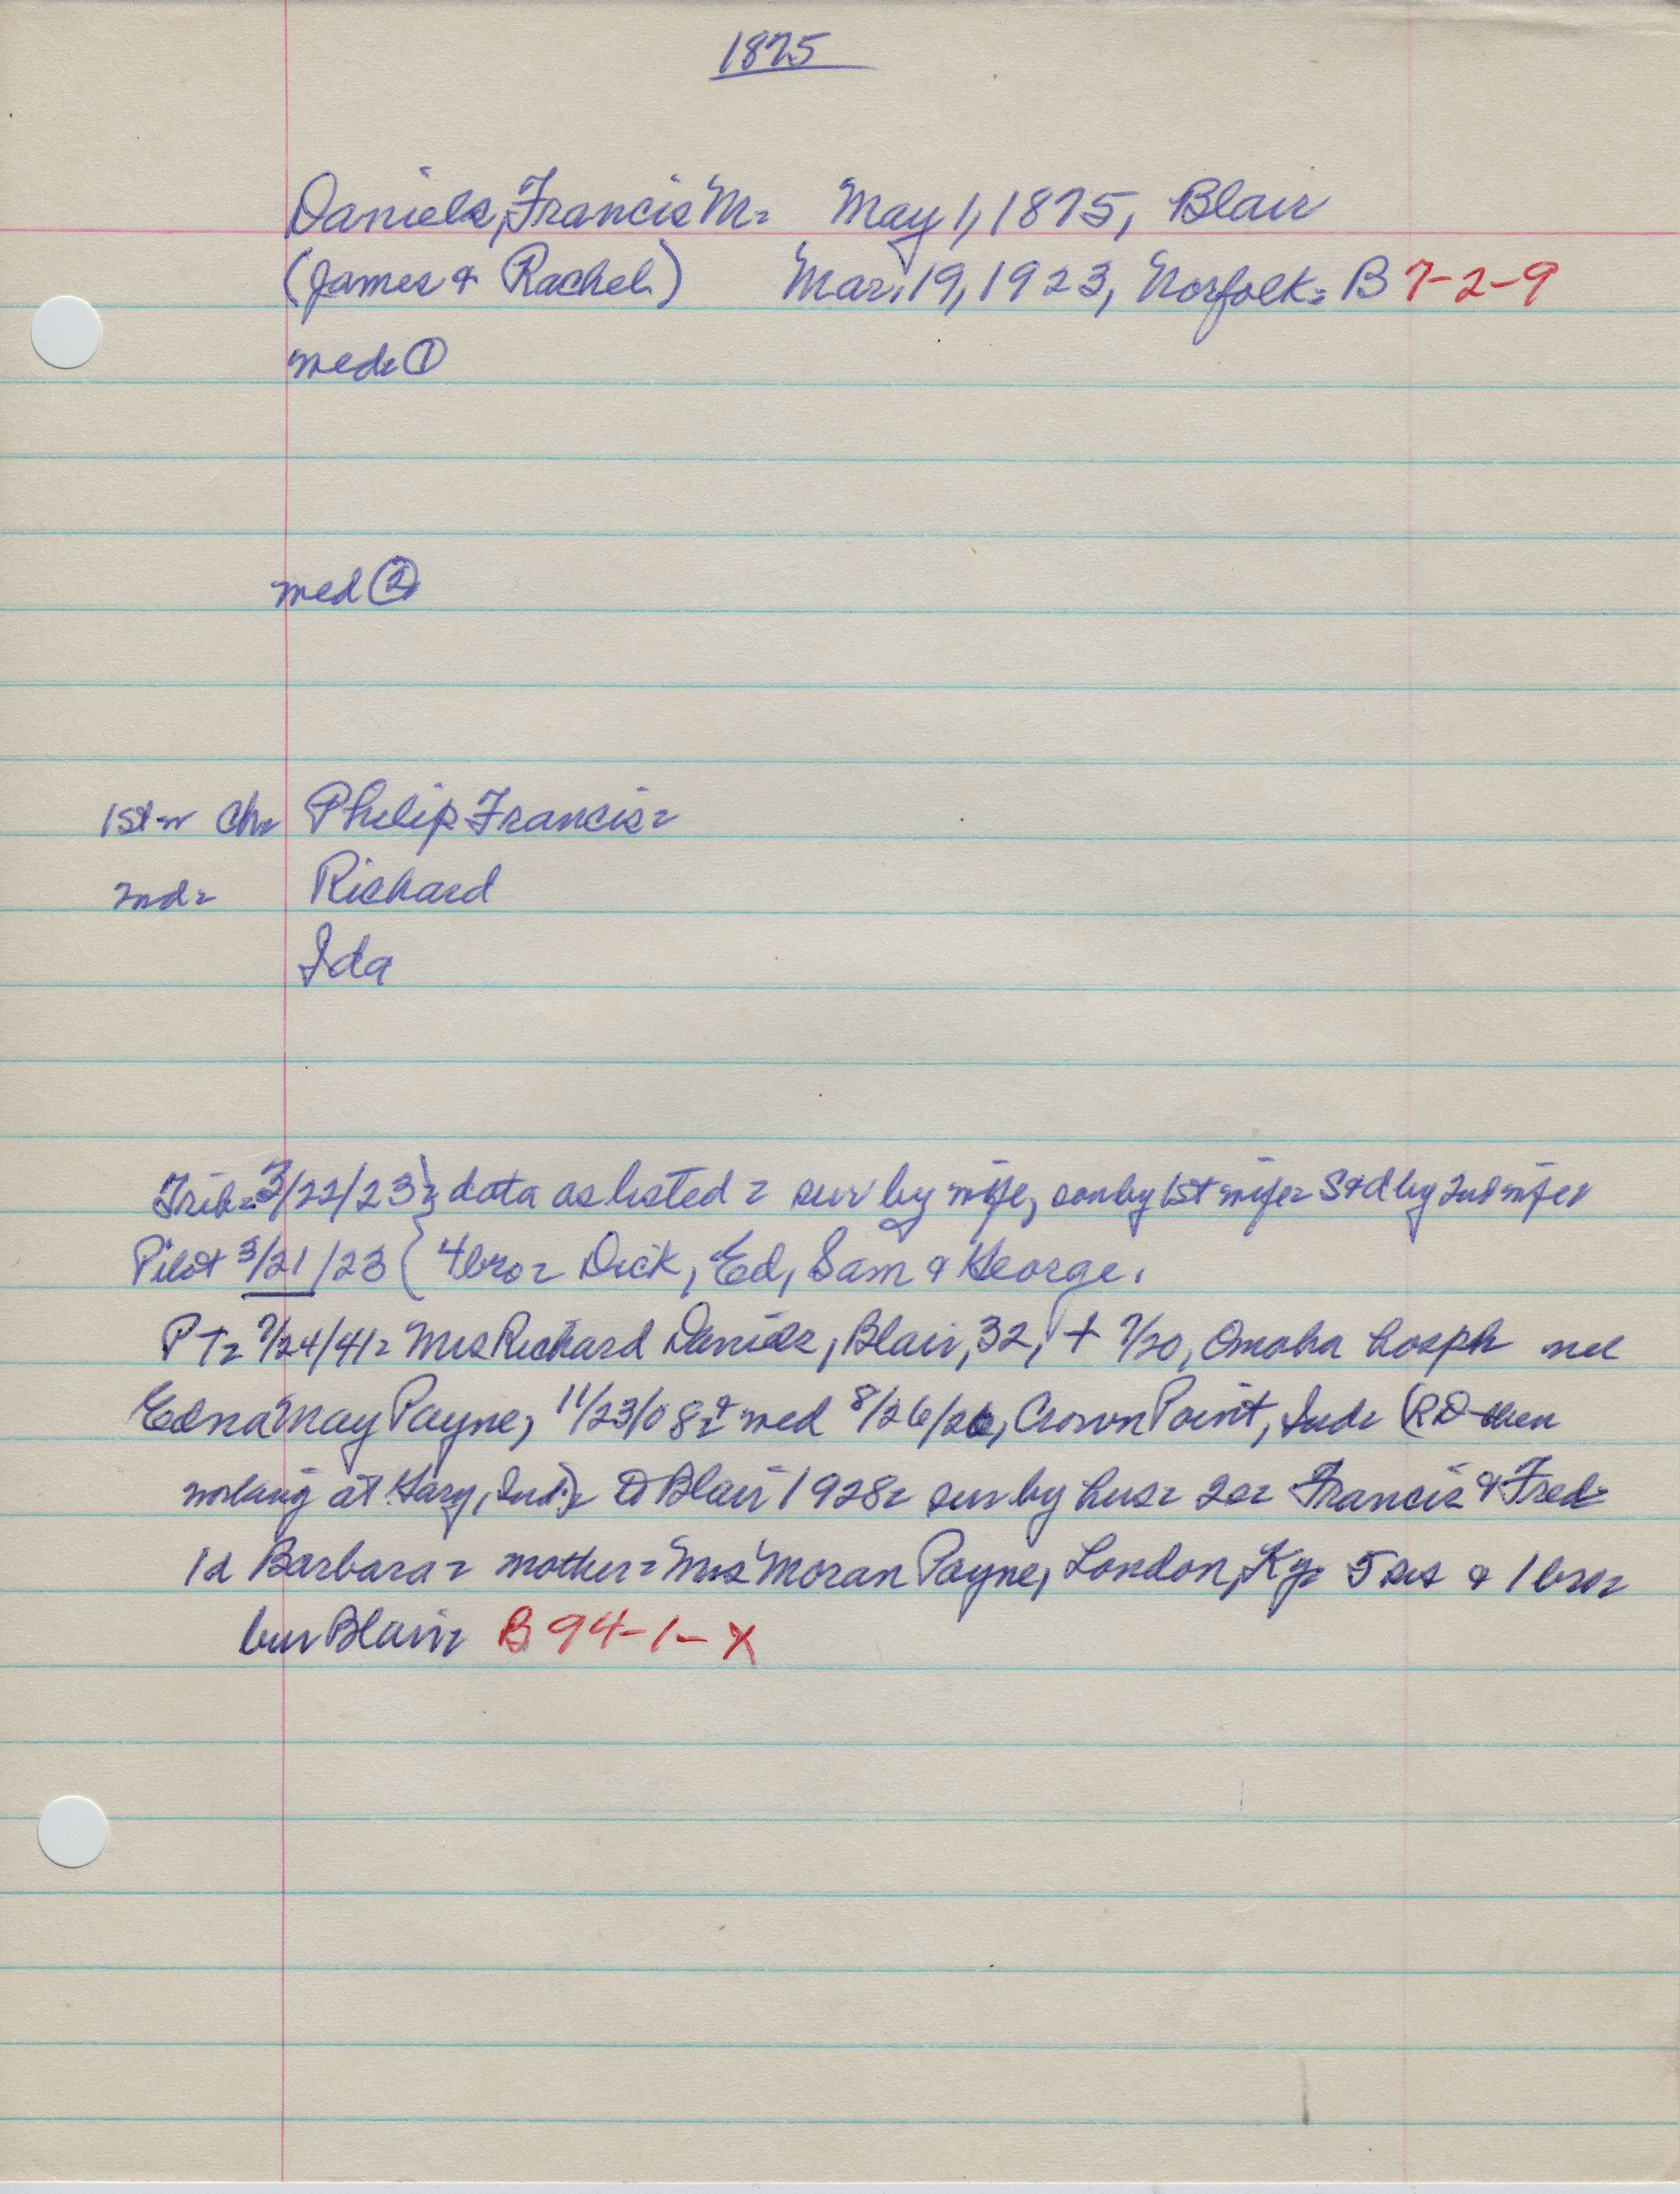 1875
Daniels, Francis M= May 1, 1875, Blair
(James & Rachel) Mar. 19, 1923, Norfolk= B 7-2-9
med= ①
med ②
1st w ch= Philip Francis=
2nd= Richard
Ida
Trib= 3/22/23} data as listed = sur by wife, son by 1st wife= S & d by 2nd wife=
Pilot 3/21/23 { 4 bro= Dick, Ed, Sam & George.
PT= 7/24/41= Mrs Richard Daniels, Blair, 32, + 7/20, Omaha hosp= nee
Edna May Payne, 11/23/08= & med 8/26/26, Crown Point, Ind= (RD then
working at Gary, Ind.)= to Blair 1928= sur by hus= 2s= Francis & Fred=
1d Barbara= mother= Mrs Moran Payne, London, Ky= 5 sis & 1 bro=
bur Blair= B 94-1-X